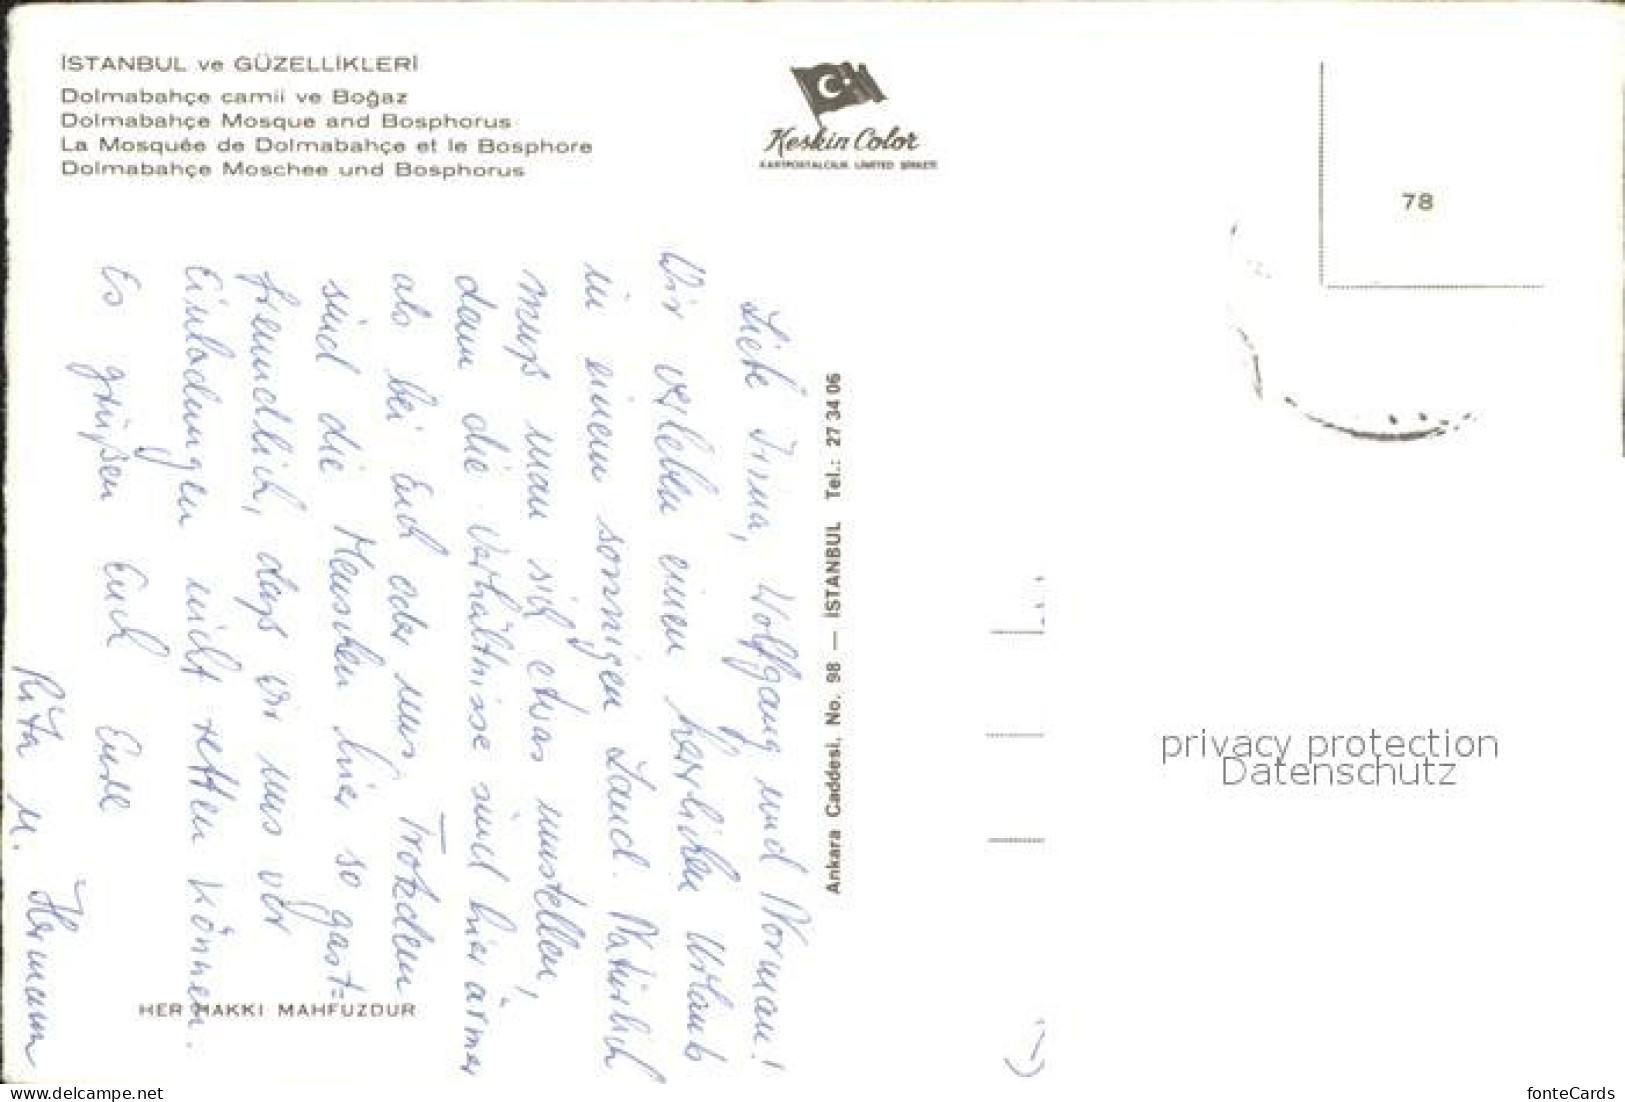 İSTANBUL ve GÜZELLİKLERİ
Dolmabahçe camii ve Boğaz
Dolmabahçe Mosque and Bosphorus
La Mosquée de Dolmabahçe et le Bosphore
Dolmabahçe Moschee und Bosphorus
Keskin Color
KARTPOSTALCILIK LİMİTED ŞİRKETİ
78
Liebe Irma, Wolfgang und Norman!
Wir verleben einen herrlichen Urlaub
in einem sonnigen Land. Natürlich
muß man sich etwas umstellen,
denn die Verhältnisse sind hier ärmer
als bei Euch oder uns. Trotzdem
sind die Menschen hier so gast=
freundlich, daß wir uns vor
Einladungen nicht retten können.
Es grüßen Euch Eure
Rita u. Hermann
Ankara Caddesi, No. 98 — İSTANBUL Tel.: 27 34 06
HER HAKKI MAHFUZDUR
privacy protection
Datenschutz
www.delcampe.net
fonteCards